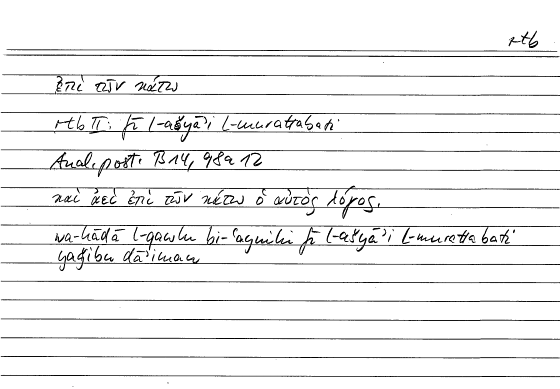 rtb
ἐπὶ τῶν κάτω
rtb II: fī l-ašyāʾi l-murattabati
Anal. post. B 14, 98a 12
καὶ ἀεὶ ἐπὶ τῶν κάτω ὁ αὐτὸς λόγος.
wa-hāḏā l-qawlu bi-ʿaynihi fī l-ašyāʾi l-murattabati
yaǧibu dāʾiman